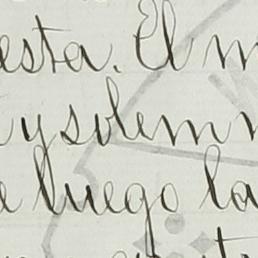 esta. El m
y solemn
e luego la